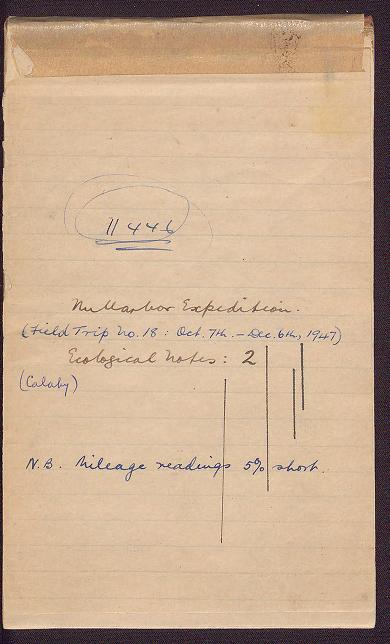 11446
Nullarbor Expedition.
(Field Trip No. 18 : Oct. 7th. - Dec. 6th, 1947)
Ecological Notes : 2
(Calaby)
N.B. Mileage readings 5% short.